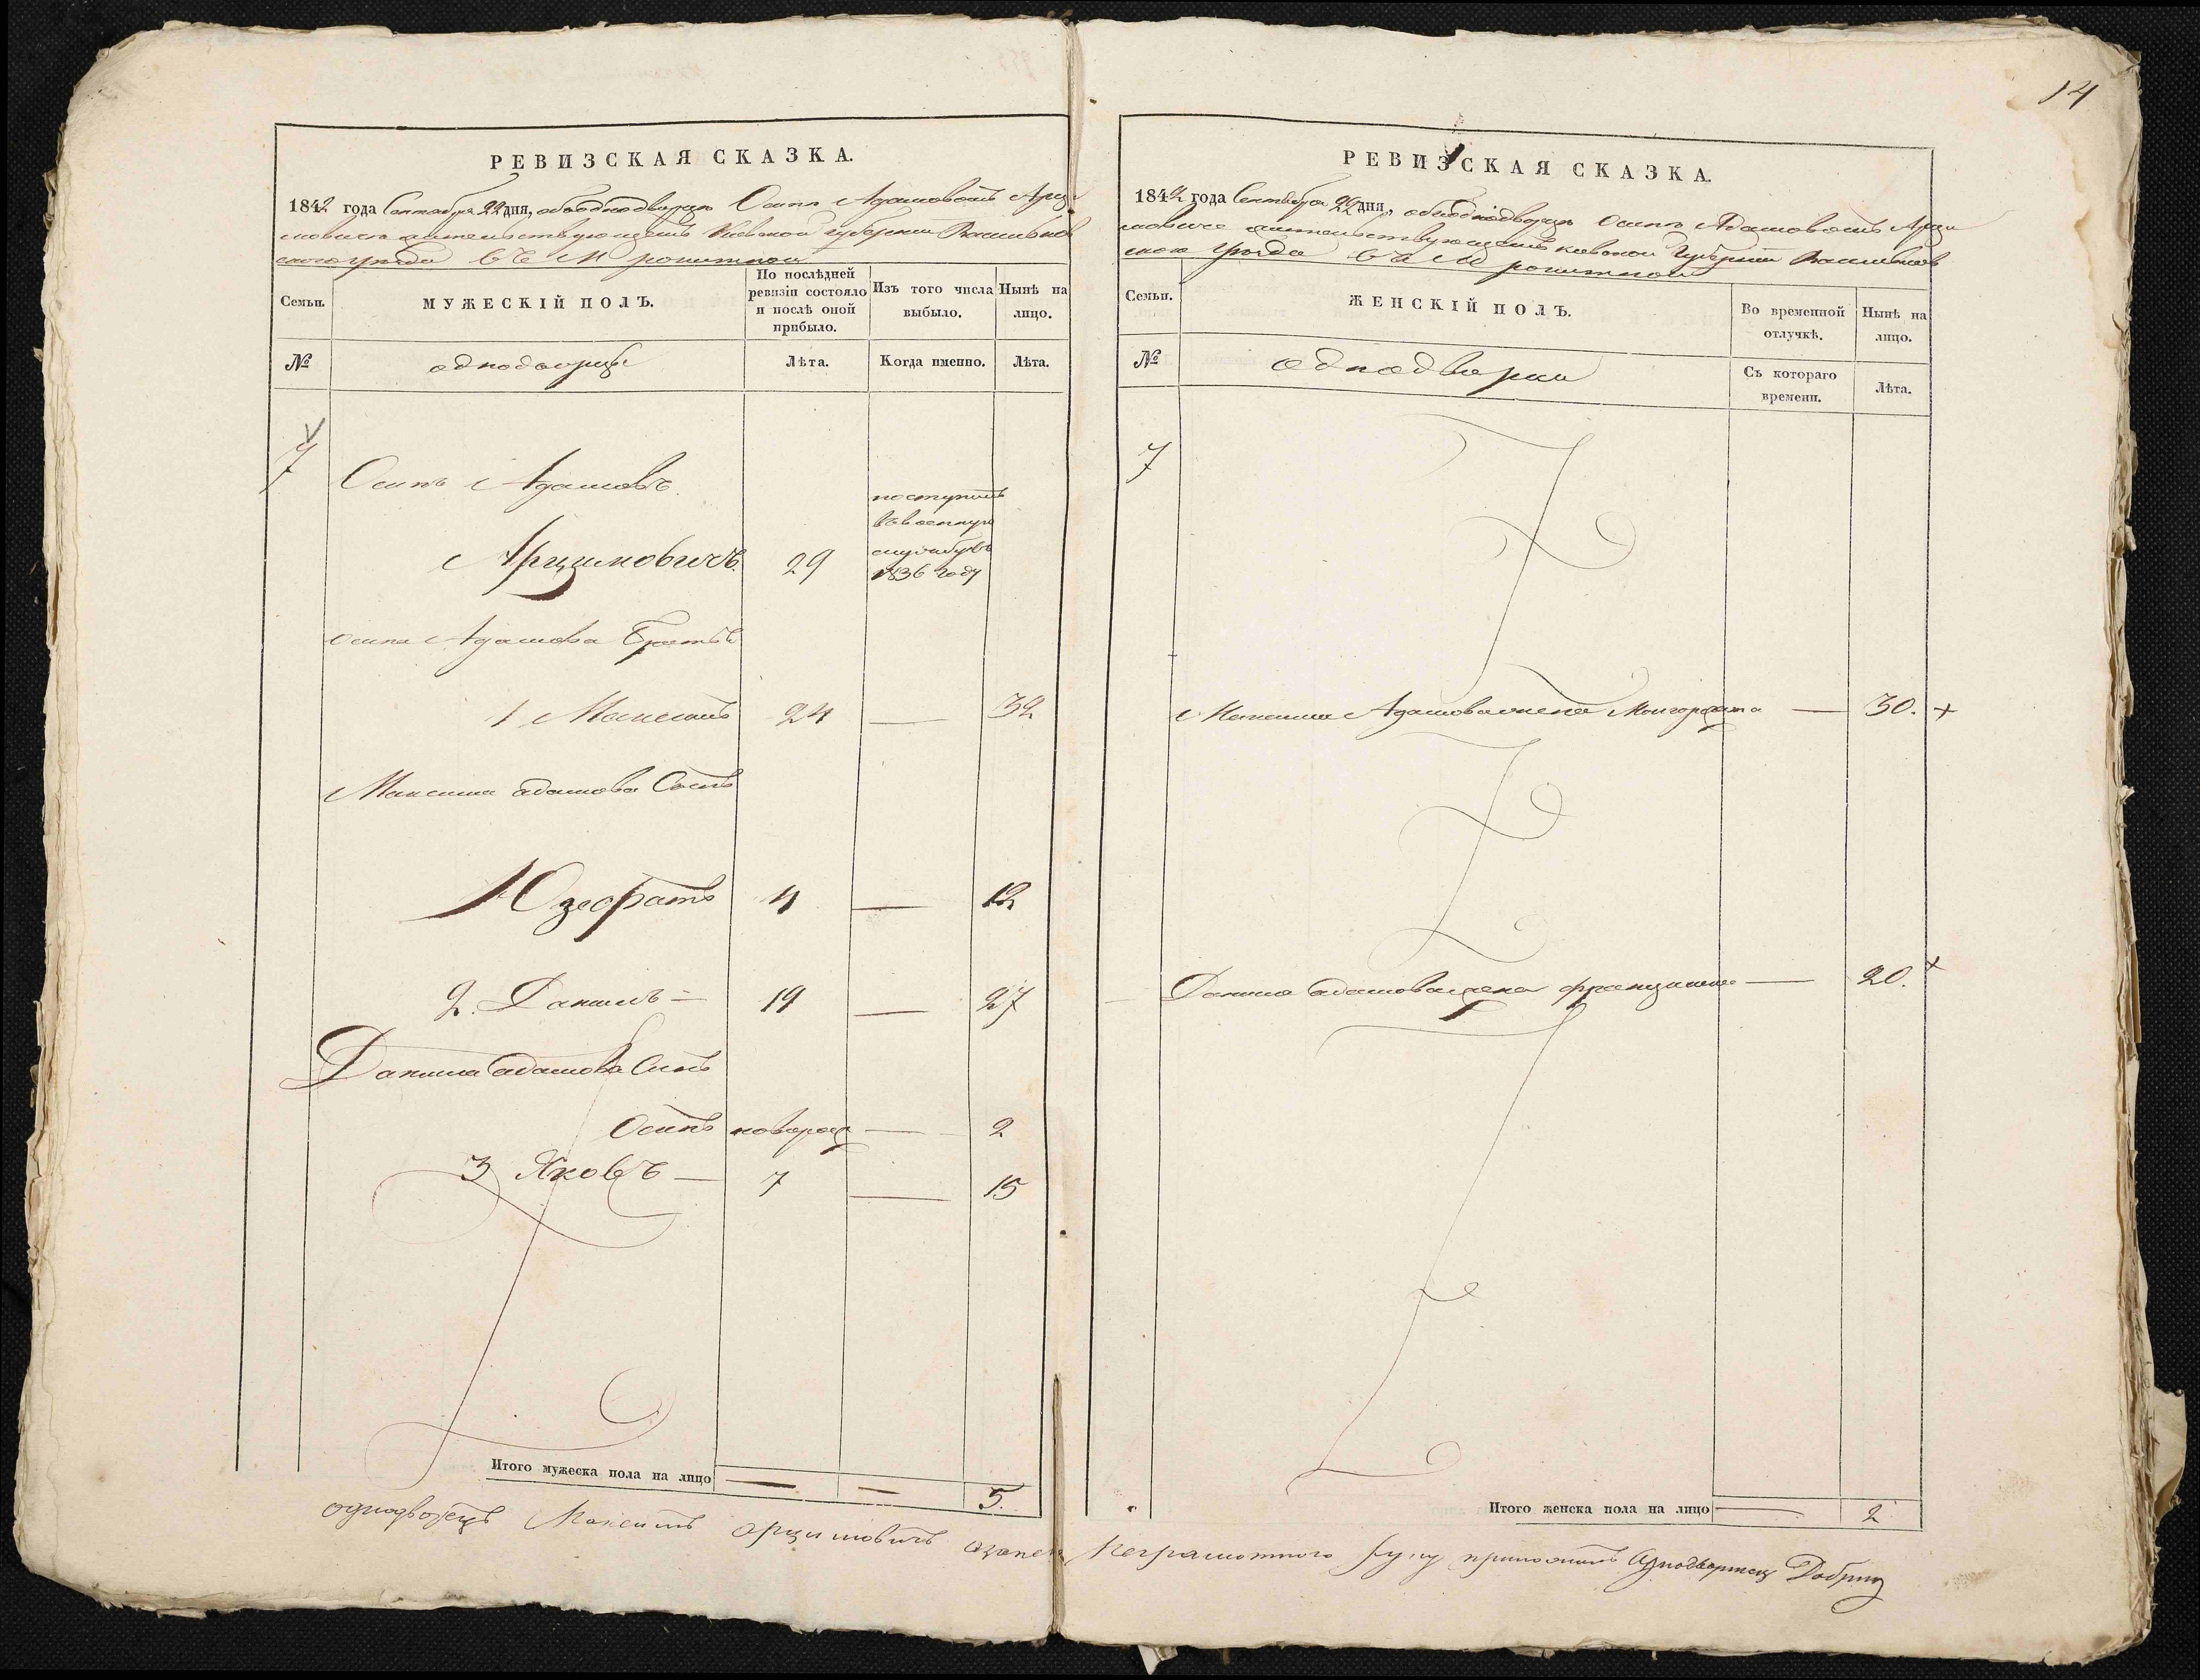 14
РЕВИЗСКАЯ СКАЗКА.
1842 года Сентября 22 дня, объ однодворце Осипе Адамовомъ Арци
мовиче жительствующемъ Киевской губернии Васильков
скаго уезда въ М
Семьи.
МУЖЕСКІЙ ПОЛЪ.
По послѣдней ревизіи состояло и послѣ оной прибыло.
Изъ того числа выбыло.
Нынѣ на лицо.
№
однодворцы
Лѣта.
Когда именно.
Лѣта.
7
Осипъ Адамовъ
Арцимовичъ. 29
поступилъ
въ военную
службу въ
1836 году
Осипа Адамова братья
1 Максимъ 24 — 32
Максима Адамова Сынъ
Юзефатъ 4 — 12
2. Данилъ — 19 — 27
Данила Адамова Сынъ
Осипъ новорож — 2
3 Яковъ — 7 — 15
Итого мужеска пола на лицо — — 5.
РЕВИЗСКАЯ СКАЗКА.
1842 года Сентября 22 дня, объ однодворце Осипе Адамовомъ Арци
мовиче жительствующемъ киевской Губернии Васильков
ского уезда въ М
Семьи.
ЖЕНСКІЙ ПОЛЪ.
Во временной отлучкѣ.
Нынѣ на лицо.
№
однодворки
Съ котораго времени.
Лѣта.
7
Максима Адамова жена — 30. +
Данила адамова жена францишка — 20. +
Итого женска пола на лицо — 2
однодворецъ Максимъ арцимовичъ неграмотного руку приложилъ Однодворецъ